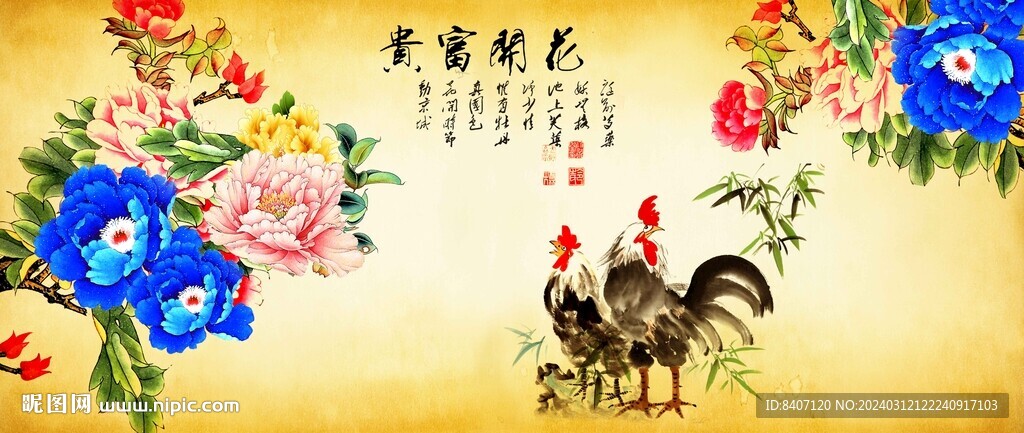 花開富貴
庭前芍藥
妖無格
池上芙蕖
淨少情
惟有牡丹
真國色
花開時節
動京城
昵图网 www.nipic.com
ID:8407120 NO:20240312122240917103